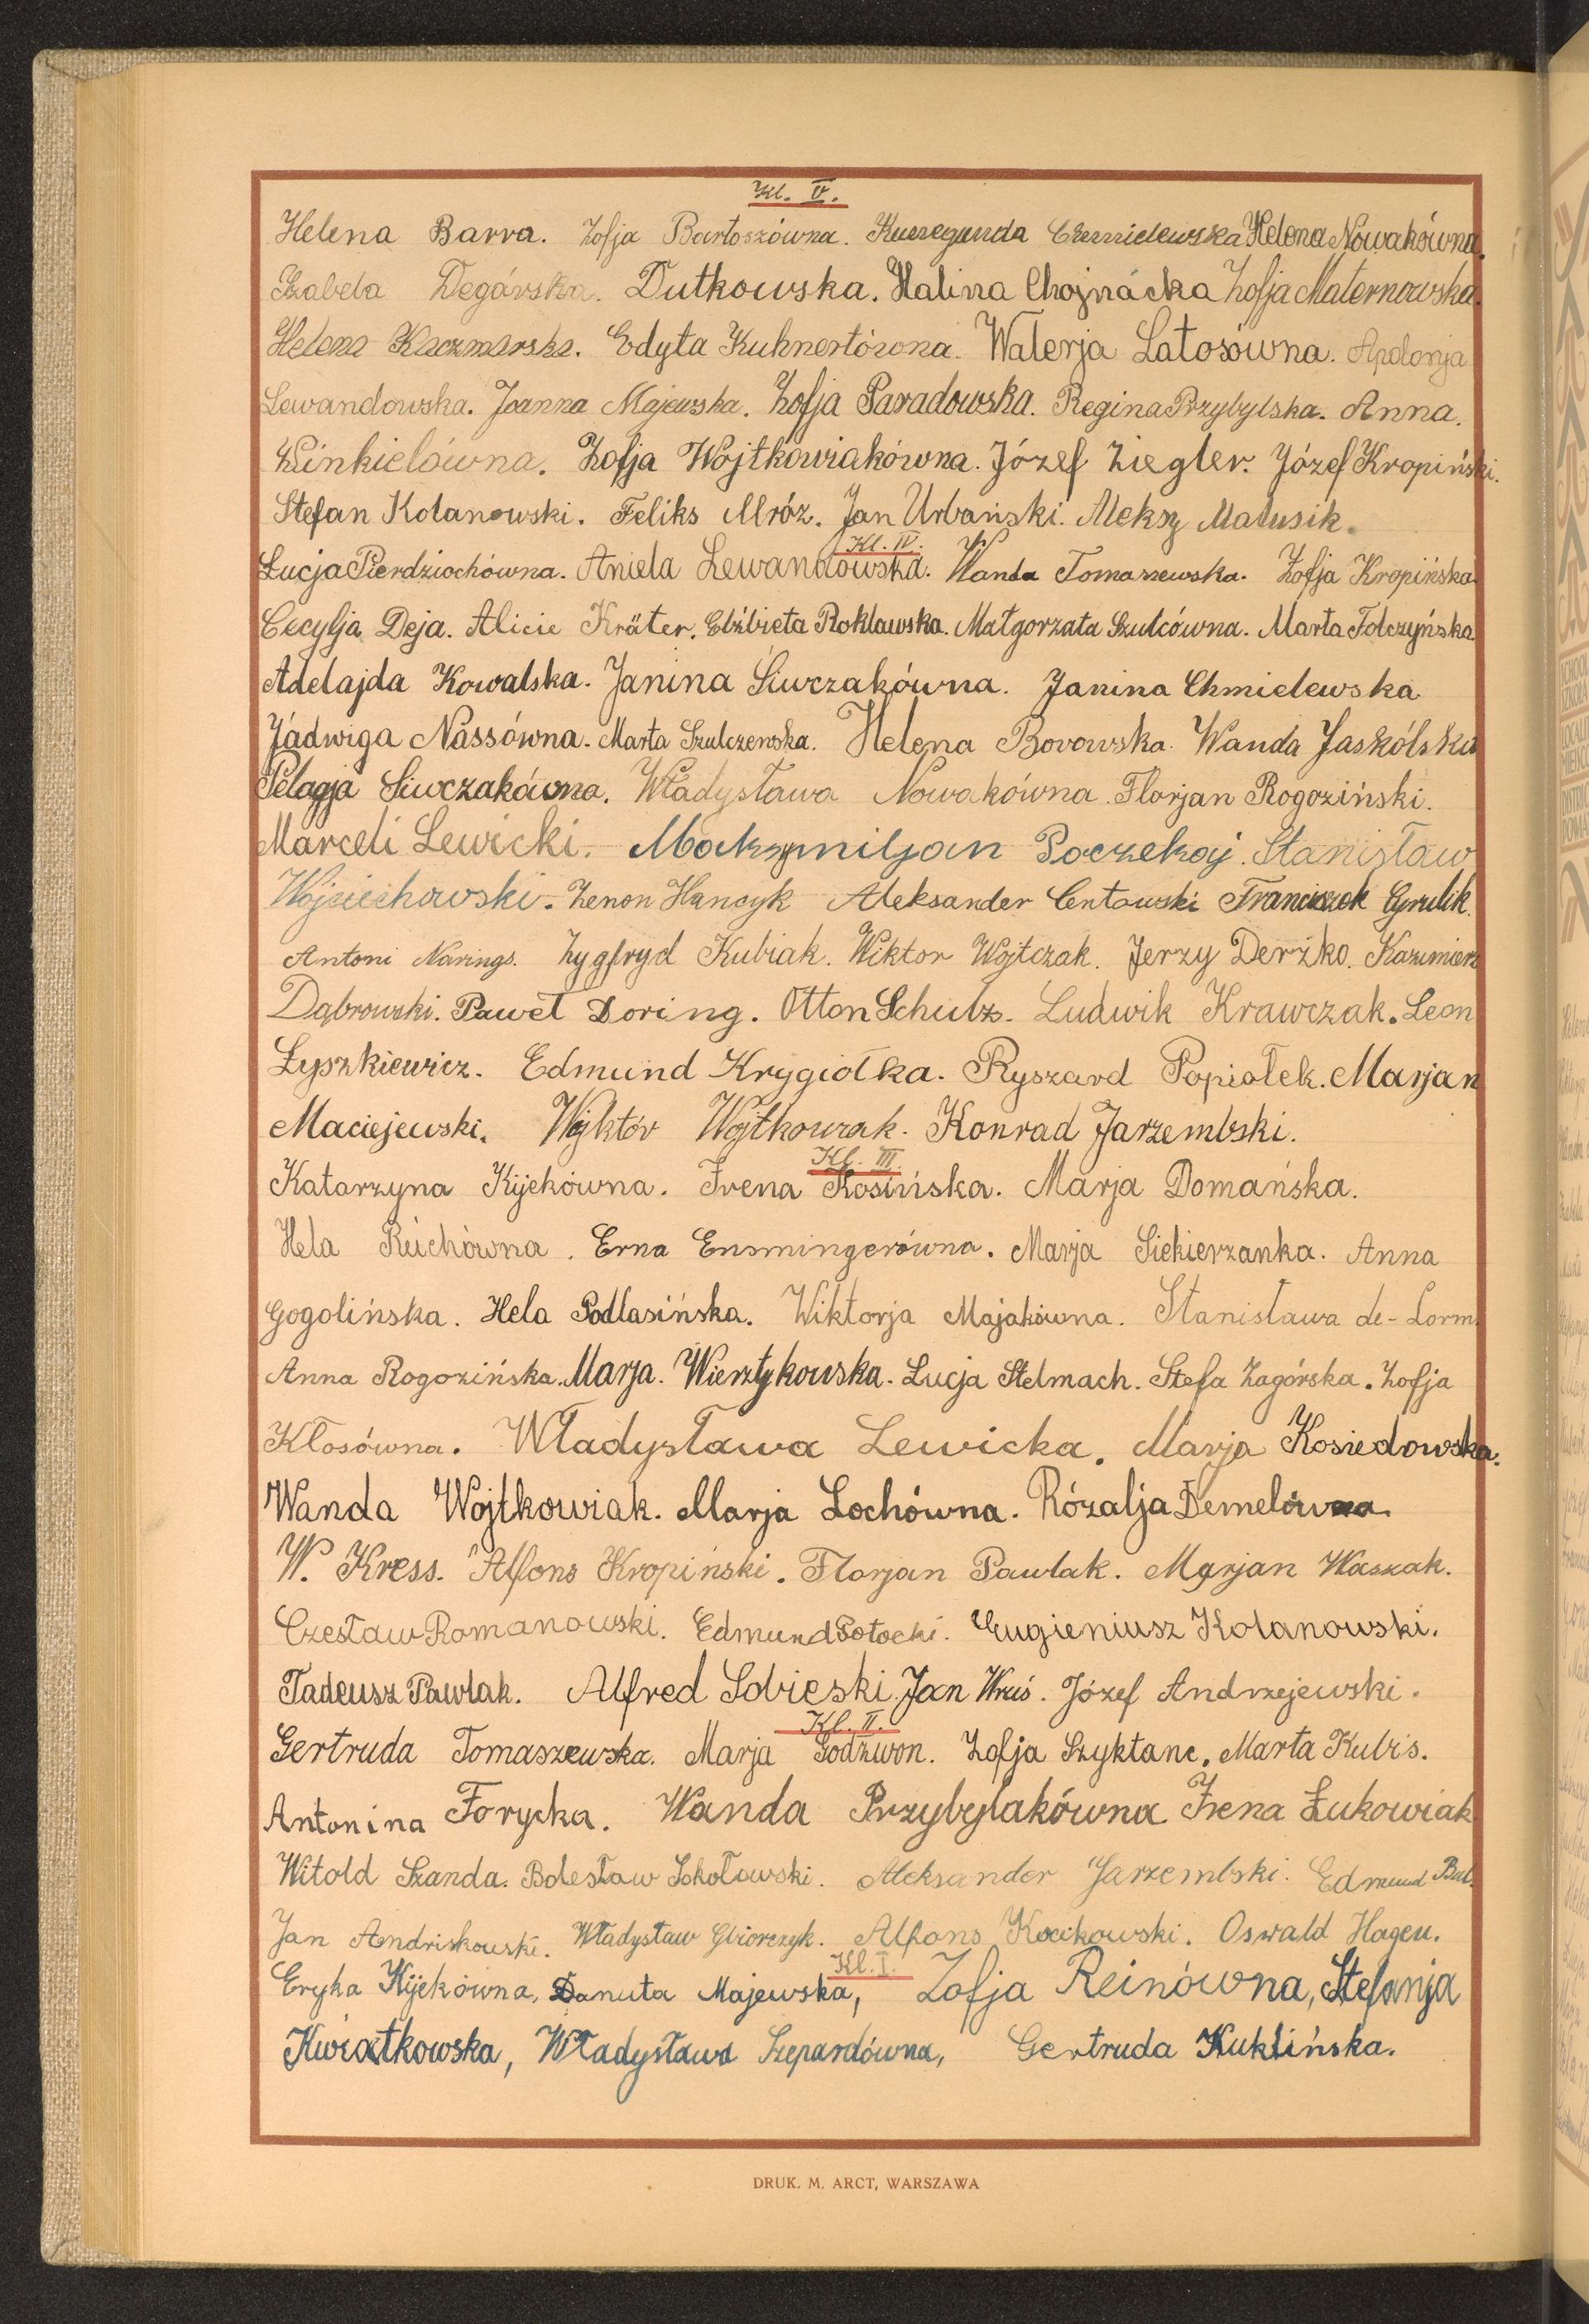 Kl. V.
Helena Barra. Zofja Bartoszówna. Kunegunda Chmielewska Helena Nowakówna.
Izabela Degórska. Dutkowska. Halina Chojnácka Zofja Maternowska.
Helena Kaczmarska. Edyta Kuhnertówna. Walerja Latosówna. Apolonja
Lewandowska. Joanna Majewska. Zofja Paradowska. Regina Przybylska. Anna.
Winkielówna. Zofja Wojtkowiakówna. Józef Ziegler. Józef Kropiński.
Stefan Kolanowski. Feliks Mróz. Jan Urbański. Aleksy Matusik.
Kl. IV.
Łucja Pierdziochówna. Aniela Lewandowska. Wanda Tomaszewska. Zofja Kropińska
Cecylja Deja. Alicie Kräter. Elżbieta Roklawska. Małgorzata Szulcówna. Marta Tolczyńska
Adelajda Kowalska. Janina Siwczakówna. Janina Chmielewska
Jádwiga Nassówna. Marta Szulczewska. Helena Borowska. Wanda Jaskólska
Pelagja Siwczakówna. Władysława Nowakówna. Florjan Rogoziński.
Marceli Lewicki. Maksymiljan Poczekaj. Stanisław
Wojciechowski. Zenon Hancyk Aleksander Centowski Franciszek Grulik.
Antoni Narings. Zygfryd Kubiak. Wiktor Wojtczak. Jerzy Derżko. Kazimierz
Dąbrowski. Paweł Doring. Otton Schulz. Ludwik Krawczak. Leon
Łyszkiewicz. Edmund Krygiołka. Ryszard Popiołek. Marjan
Maciejewski. Wyktór Wojtkowiak. Konrad Jarzembski.
Kl. III.
Katarzyna Kijekówna. Irena Rosińska. Marja Domańska.
Hela Rúchówna. Erna Ensmingerówna. Marja Siekierzanka. Anna
Gogolińska. Hela Podlasińska. Wiktorja Majakówna. Stanisława de-Lorm.
Anna Rogozińska. Marja. Wierztykowska. Łucja Stelmach. Stefa Zagórska. Zofja
Kłosówna. Władysława Lewicka. Marja Kosiedowska.
Wanda Wojtkowiak. Marja Lochówna. Rózalja Demelówna.
W. Kress. Alfons Kropiński. Florjan Pawlak. Marjan Waszak.
Czesław Romanowski. Edmund Potocki. Eugieniusz Kolanowski.
Tadeusz Pawlak. Alfred Sobieski. Jan Wruś. Józef Andrzejewski.
Kl. II.
Gertruda Tomaszewska. Marja Godzwon. Zofja Szyktanc. Marta Kubis.
Antonina Forycka. Wanda Przybylakówna Irena Łukowiak
Witold Szanda. Bolesław Sokołowski. Aleksander Jarzembski. Edmund
Jan Andriskowski. Władysław Gbiorczyk. Alfons Kocikowski. Oswald Hagen.
Kl. I.
Eryka Kijekówna, Danuta Majewska, Zofja Reinówna, Stefanja
Kwiatkowska, Władysława Szepardówna, Gertruda Kuklińska.
DRUK. M. ARCT, WARSZAWA